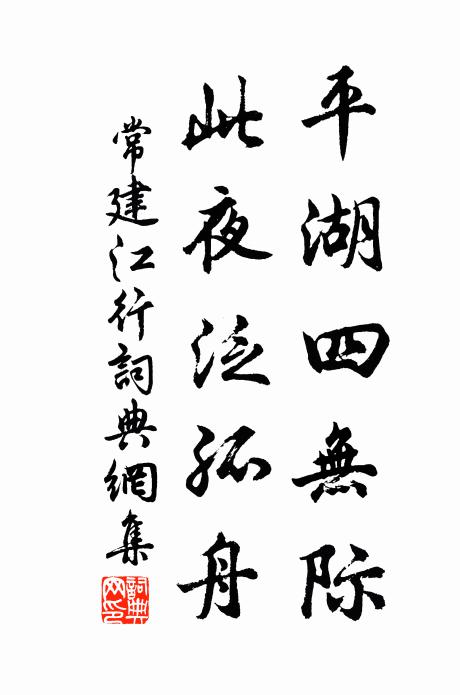 平湖四無際
此夜泛孤舟
常建江行詞典網集
詞典网印